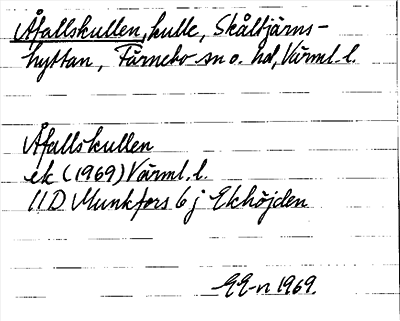 Åfallskullen, kulle, Skålltjärns-
hyttan, Färnebo sn o. hd, Värml. l.
Åfallskullen
ek (1969) Värml. l.
11D Munkfors 6 j Ekhöjden
EE-n 1969.